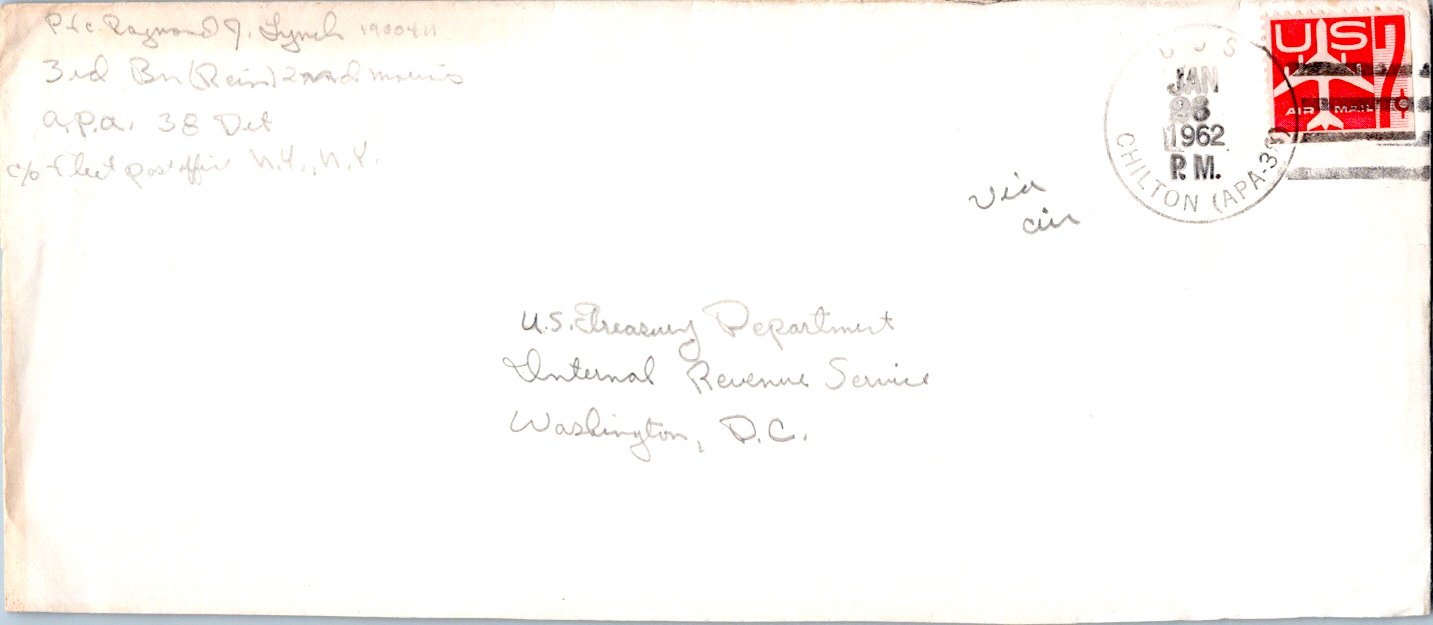 Pfc Raymond J. Lynch 1960411
3rd Bn (Rein) 2nd Marines
a.p.a. 38 Det
c/o Fleet post office N.Y., N.Y.
USS
JAN
28
1962
P.M.
CHILTON (APA-38)
US 7¢
AIR MAIL
via
air
U.S. Treasury Department
Internal Revenue Service
Washington, D.C.